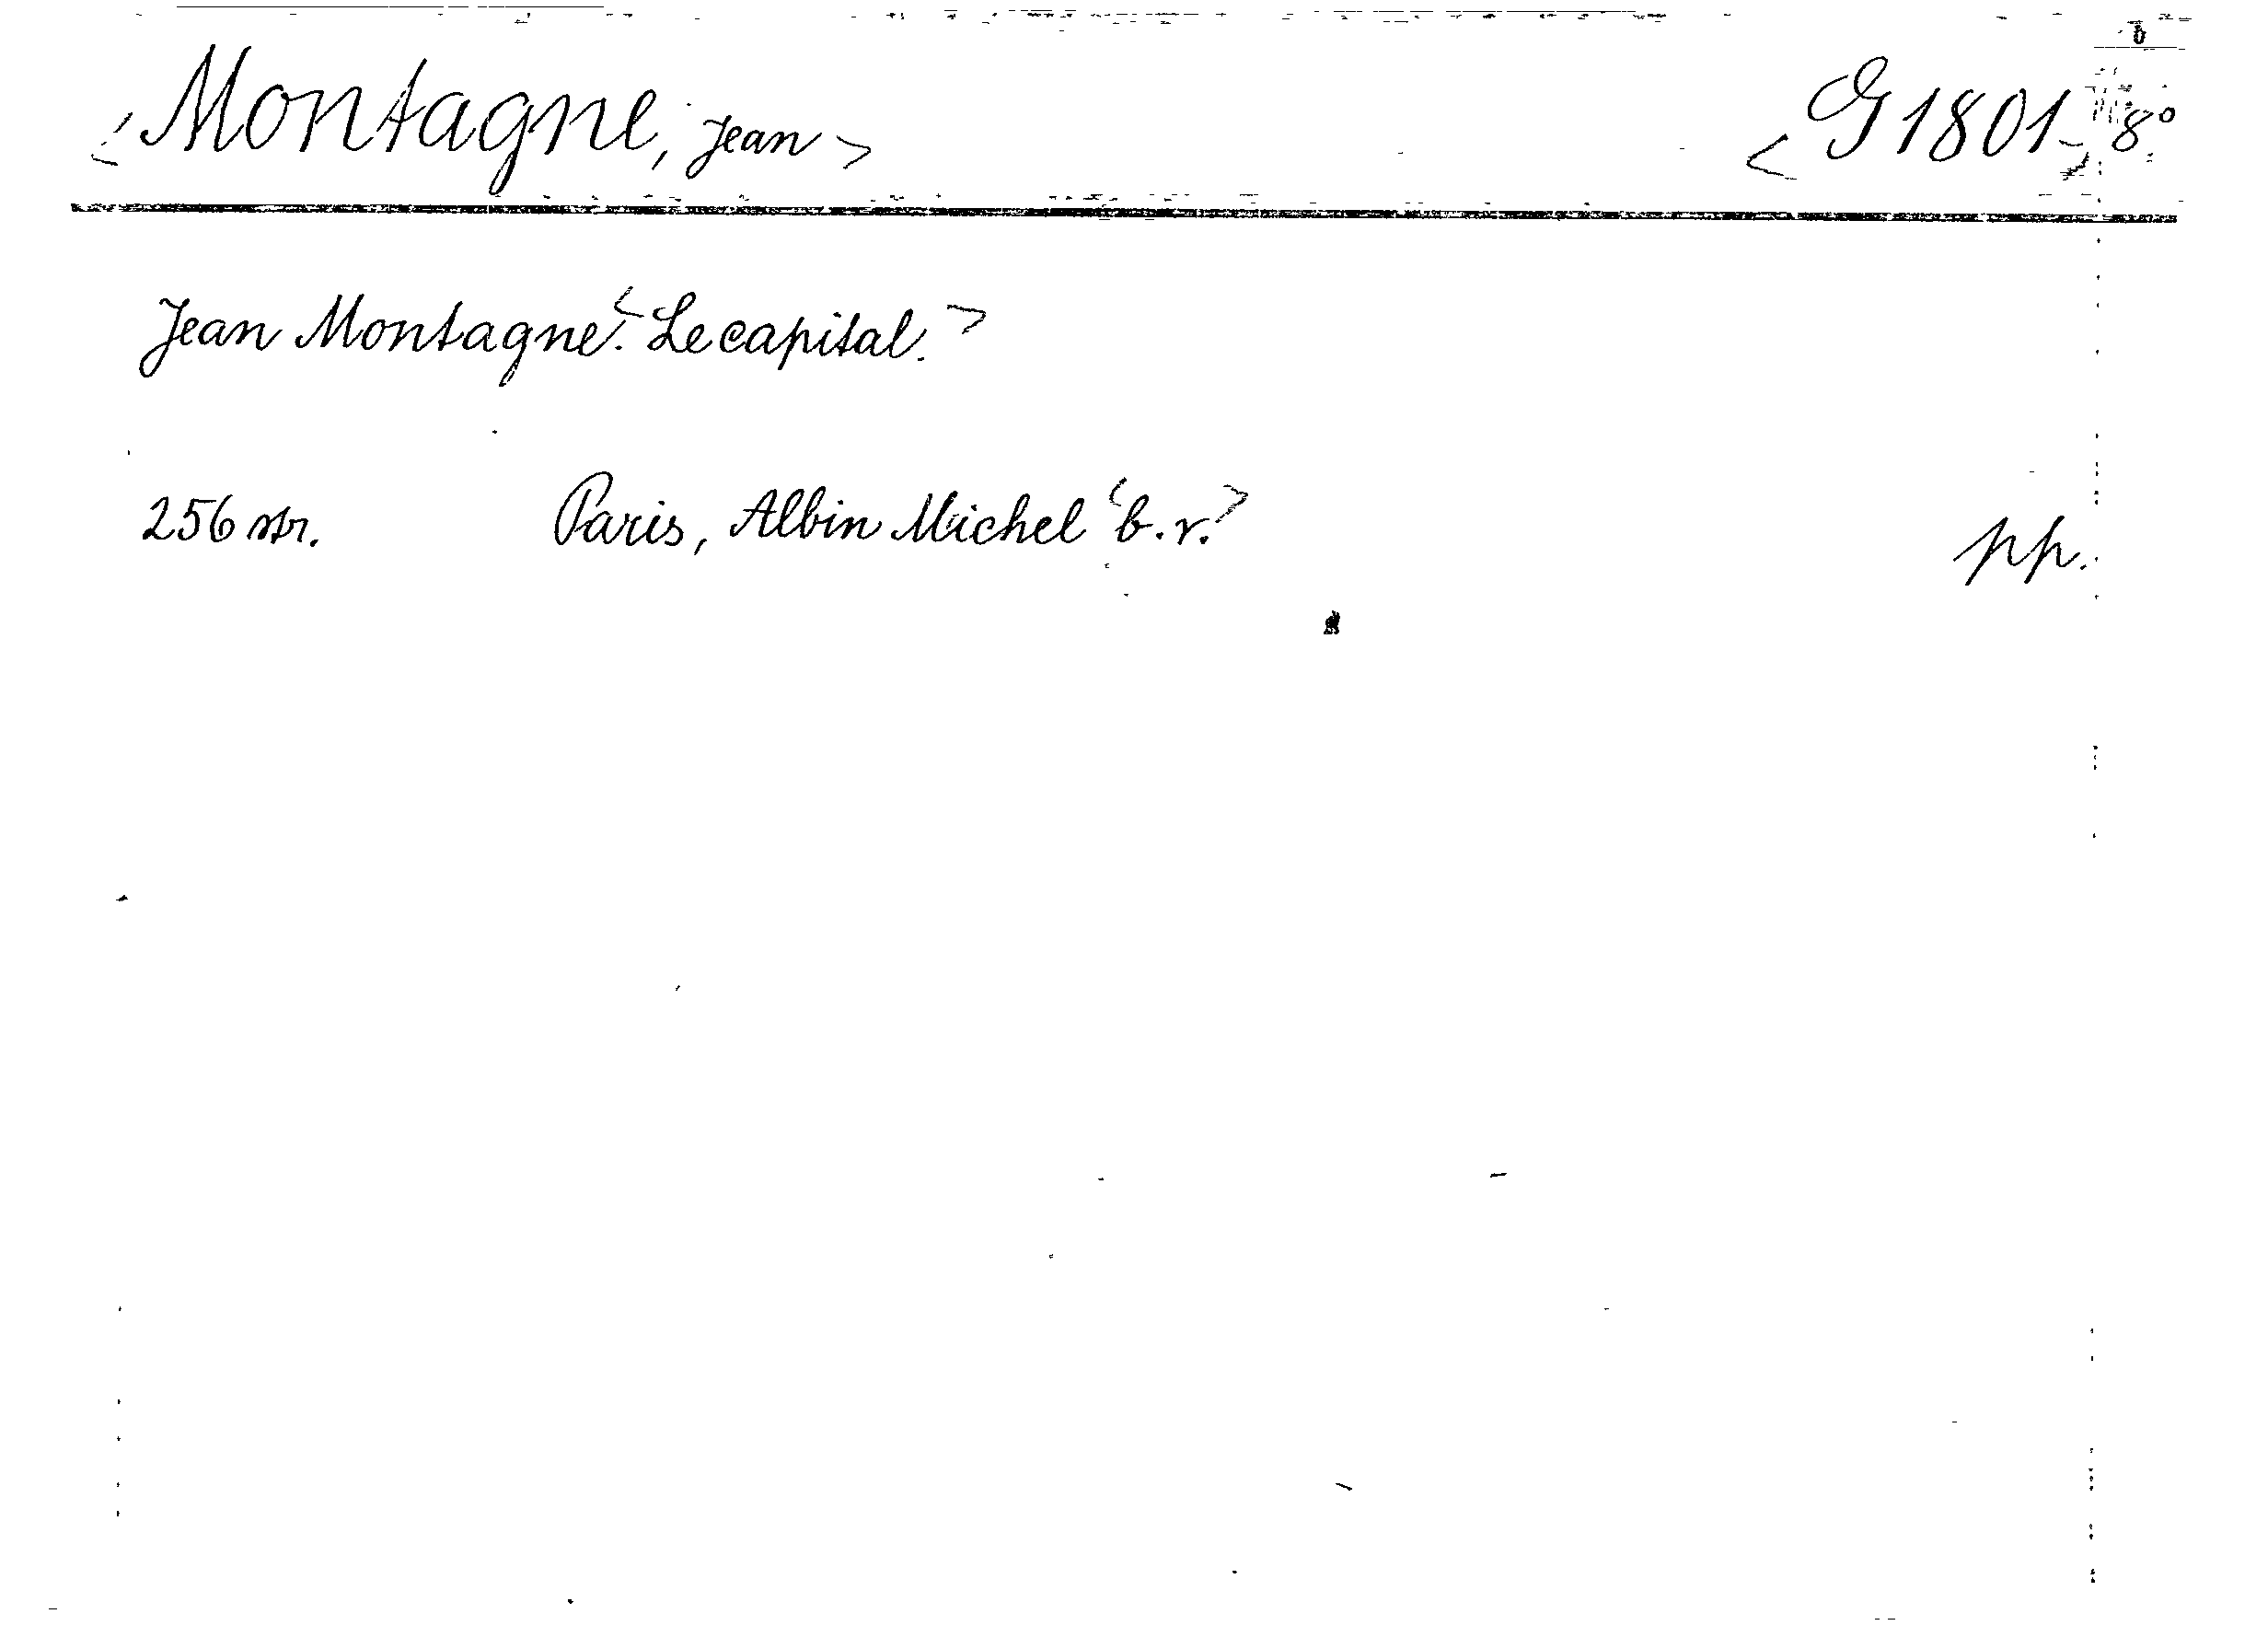 <Montagne, Jean> <G 1801> 8°
Jean Montagne. <Le capital.>
256 str. Paris, Albin Michel <b.r.> pp.